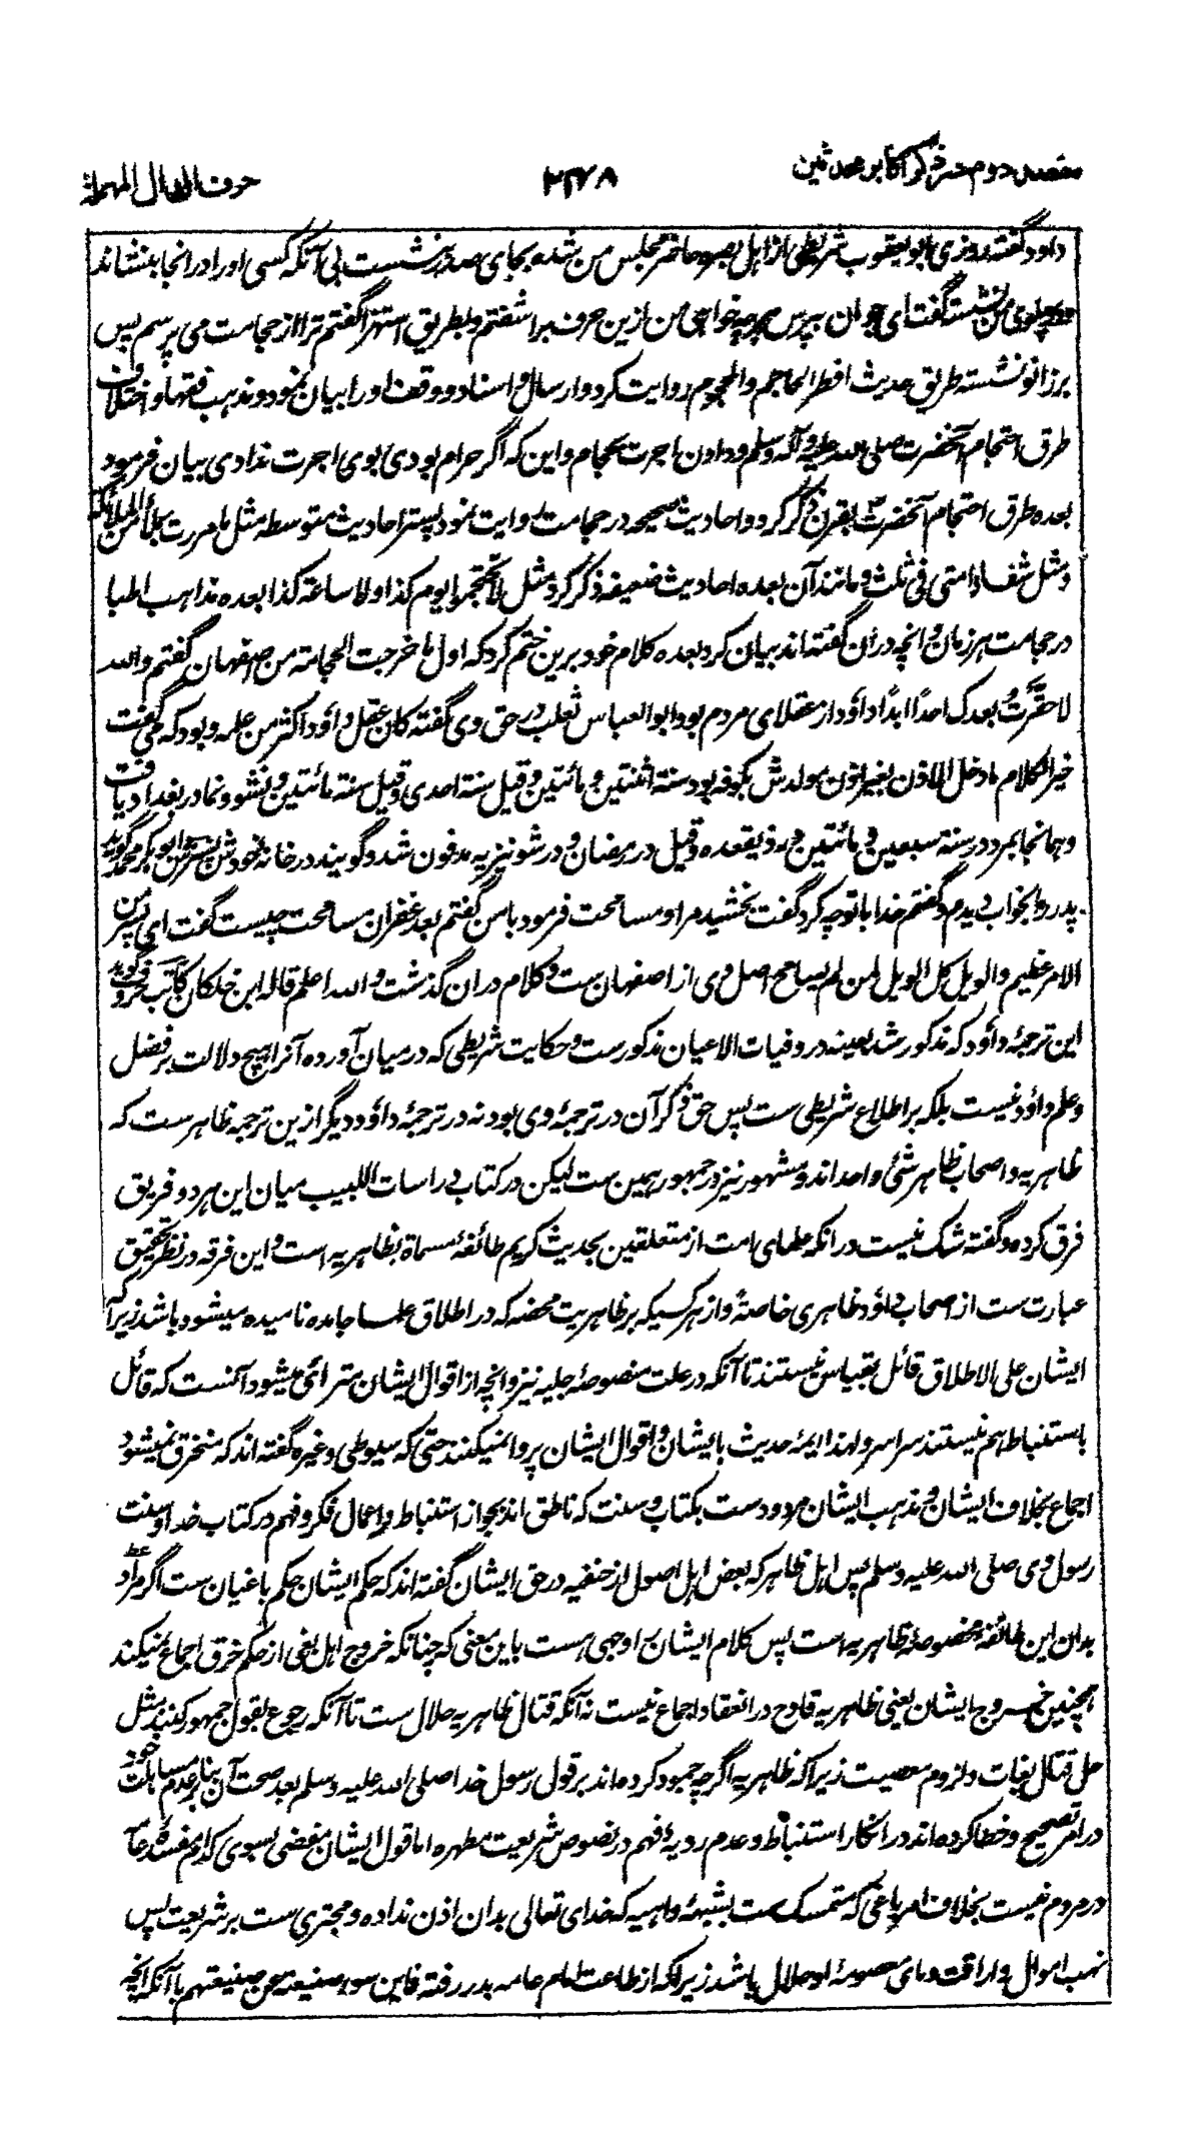 مقصد دوم در ذکر اکابر محدثین ۲۴۷۸ حرف الدال المهملة
داود گفته روزی ابو یعقوب شریطی از اهل بصره حاضر مجلس من شد و بجای صدر بنشست بی آنکه کسی او را در انجا بنشاند
و در پهلوی من نشست گفت ای جوان بپرس هر چه خواهی من ازین حرف برا شفتم و بطریق استهزا گفتم ترا از حجامت می پرسم پس
برزانو نشسته طریق حدیث افطر الحاجم والمحجوم روایت کرد و ارسال و اسناد و وقف او را بیان نمود و مذهب فقها و اختلاف
طرق احتجام آنحضرت صلی الله علیه وآله وسلم و دادن اجرت بحجام و این که اگر حرام بودی بوی اجرت ندادی بیان فرمود
بعده طرق احتجام آنحضرت بقرن ذکر کرد و احادیث صحیحه در حجامت روایت نمود پستر احادیث متوسطه مثل ما مررت بملأ من الملائکة
و مثل شفاء امتی فی ثلث و مانند آن بعده احادیث ضعیفه ذکر کرد مثل لا تحتجموا یوم کذا ولا ساعة کذا بعده مذاهب اطبا
در حجامت هر زمان و انچه در ان گفته اند بیان کرد بعده کلام خود برین ختم کرد که اول ما خرجت الحجامة من اصفهان گفتم والله
لا حقرت بعدک احدا ابدا داؤد از عقلای مردم بود ابو العباس ثعلب در حق وی گفته کان عقل داؤد اکثر من علمه و بود که می گفت
خیر الکلام ما دخل الاذن بغیر اذن مولدش بکوفه بود سنة اثنتین و مائتین و قیل سنة احدی و قیل سنة مائتین و نشو و نما در بغداد یافت
و همانجا بمرد در سنة سبعین و مائتین در ذیقعده و قیل در رمضان و در شونیزیه مدفون شد و گویند در خانه خودش پسرش ابو بکر محمد گوید
پدر را بخواب دیدم و گفتم خدا با تو چه کرد گفت بخشید مرا و مسامحت فرمود با من گفتم بعد غفران مسامحت چیست گفت ای پسر من
الامر عظیم والویل کل الویل لمن لم یسامح اصل وی از اصفهان ست و کلام در ان گذشت والله اعلم قاله ابن خلکان کاتب حروف گوید
این ترجمۀ داؤد که مذکور شد بعینه در وفیات الاعیان مذکورست و حکایت شریطی که در میان آورده آنرا هیچ دلالت بر فضل
و علم داؤد نیست بلکه بر اطلاع شریطی ست پس حق ذکر آن در ترجمۀ وی بود نه در ترجمۀ داؤد دیگر ازین ترجمه ظاهر ست که
ظاهریه و اصحاب ظاهر شئ واحد اند و مشهور نیز در جمهور همین ست لیکن در کتاب دراسات اللبیب میان این هر دو فریق
فرق کرده و گفته شک نیست در انکه علمای امت از متعلقین بحدیث کریم طائفۀ مسماة بظاهریه است و این فرقه در نظر تحقیق
عبارت ست از اصحاب داؤد ظاهری خاصة و از هر کسیکه بر ظاهریت محضه که در اطلاق علما جامده نامیده میشود باشد زیرا که
ایشان علی الاطلاق قائل بقیاس نیستند تا آنکه در علت منصوصۀ جلیه نیز و انچه از اقوال ایشان مترائی میشود آنست که قائل
باستنباط هم نیستند سراسر و لهذا ایمۀ حدیث بایشان و اقوال ایشان پروا نمیکنند حتی که سیوطی و غیره گفته اند که منخرق نمیشود
اجماع بخلاف ایشان و مذهب ایشان مردود ست بکتاب و سنت که ناطق اند بجواز استنباط و اعمال فکر و فهم در کتاب خدا و سنت
رسول وی صلی الله علیه وسلم پس اهل ظاهر که بعض اهل اصول از حنفیه در حق ایشان گفته اند که حکم ایشان حکم باغیان ست اگر مراد
بدان این طائفۀ مخصوصۀ ظاهریه است پس کلام ایشان را وجهی هست باین معنی که چنانکه خروج اهل بغی از حکم خرق اجماع نمیکند
همچنین خروج ایشان یعنی ظاهریه قادح در انعقاد اجماع نیست نه آنکه قتال ظاهریه حلال ست تا آنکه رجوع بقول جمهور کنند مثل
حل قتال بغات و لزوم معصیت زیرا که ظاهریه اگر چه جمود کرده اند بر قول رسول خدا صلی الله علیه وسلم بعد صحت آن بنا بر عدم مبالات خود
در امر تصحیح و خطا کرده اند در انکار استنباط و عدم رویه و فهم در نصوص شریعت مطهره اما قول ایشان مفضی بسوی کدام مفسدۀ عامه
در مردم نیست بخلاف امر باغی که متمسک ست بشبهۀ واهیه که خدای تعالی بدان اذن نداده و مجتری ست بر شریعت پس
نهب اموال و اراقت دمای معصومۀ او حلال باشد زیرا که از طاعت امام عامه بدر رفته فاین سوء صنیعه من صنیعتهم با آنکه انچه